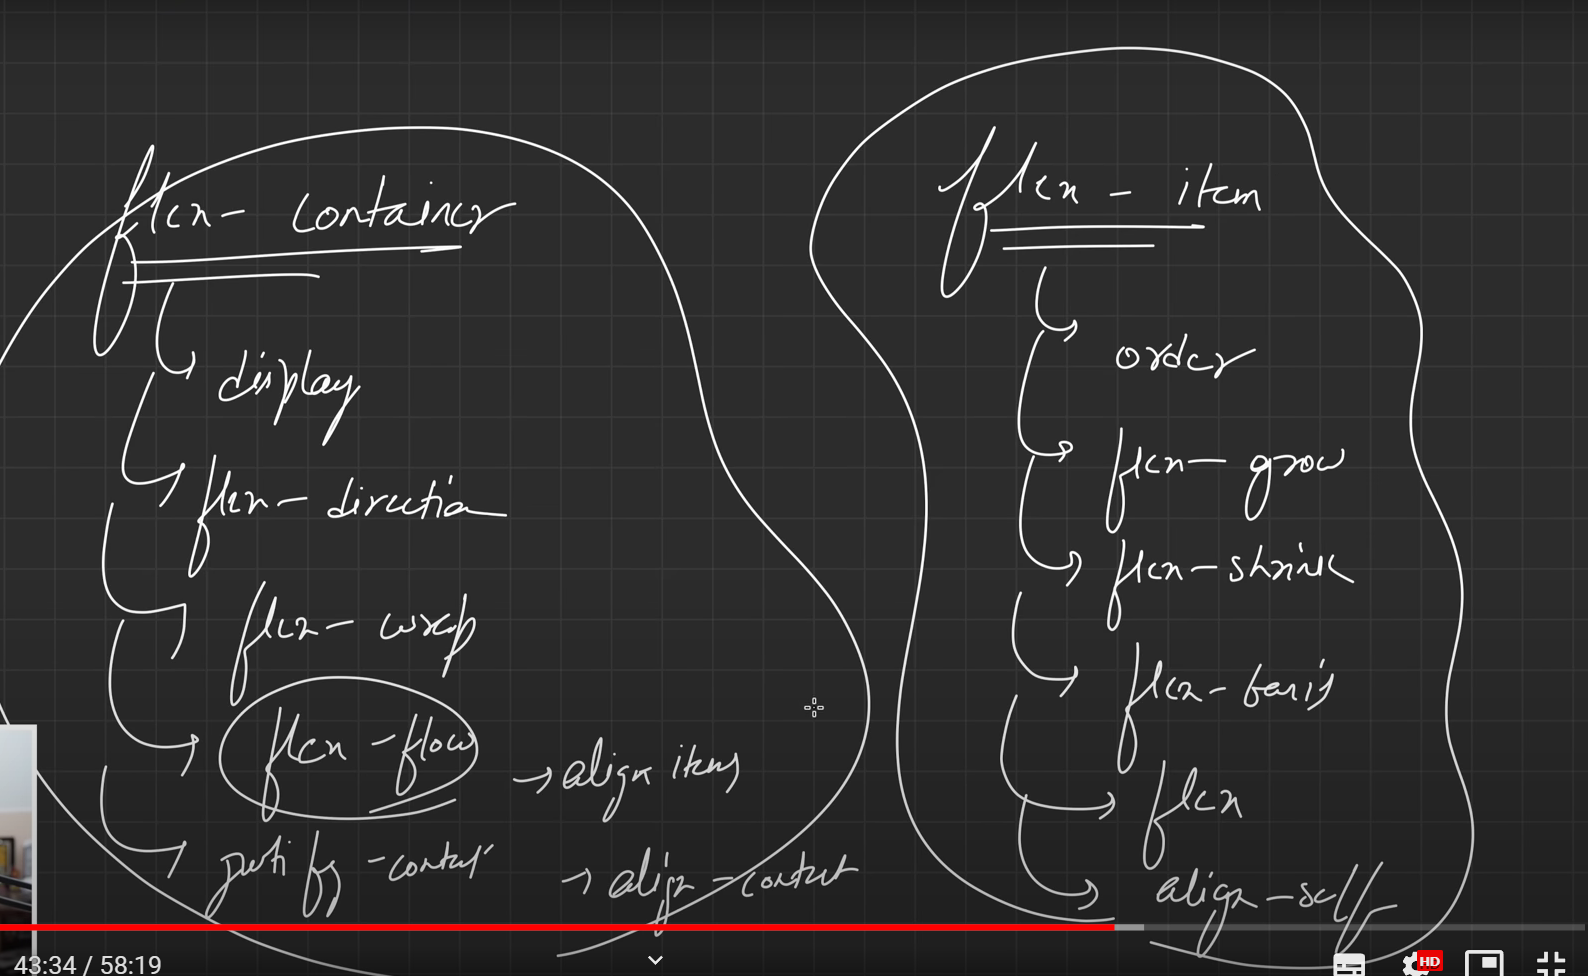 flex - container
display
flex - direction
flex - wrap
flex - flow
→ align items
justify - content
→ align - content
flex - item
order
flex - grow
flex - shrink
flex - basis
flex
align - self
43:34 / 58:19
HD